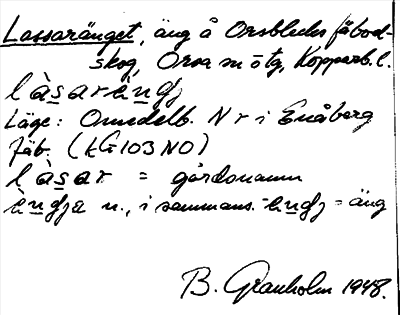 Lassaränget, äng å Orsblecks fäbod-
skog, Orsa sn ö tg, Kopparb. l.
làsarèngj
Läge: Omedelb. N r i Enåberg
fäb. (103 NO)
làsar = gårdsnamn
èngja n., i sammans. -èngj = äng
B. Granholm 1948.